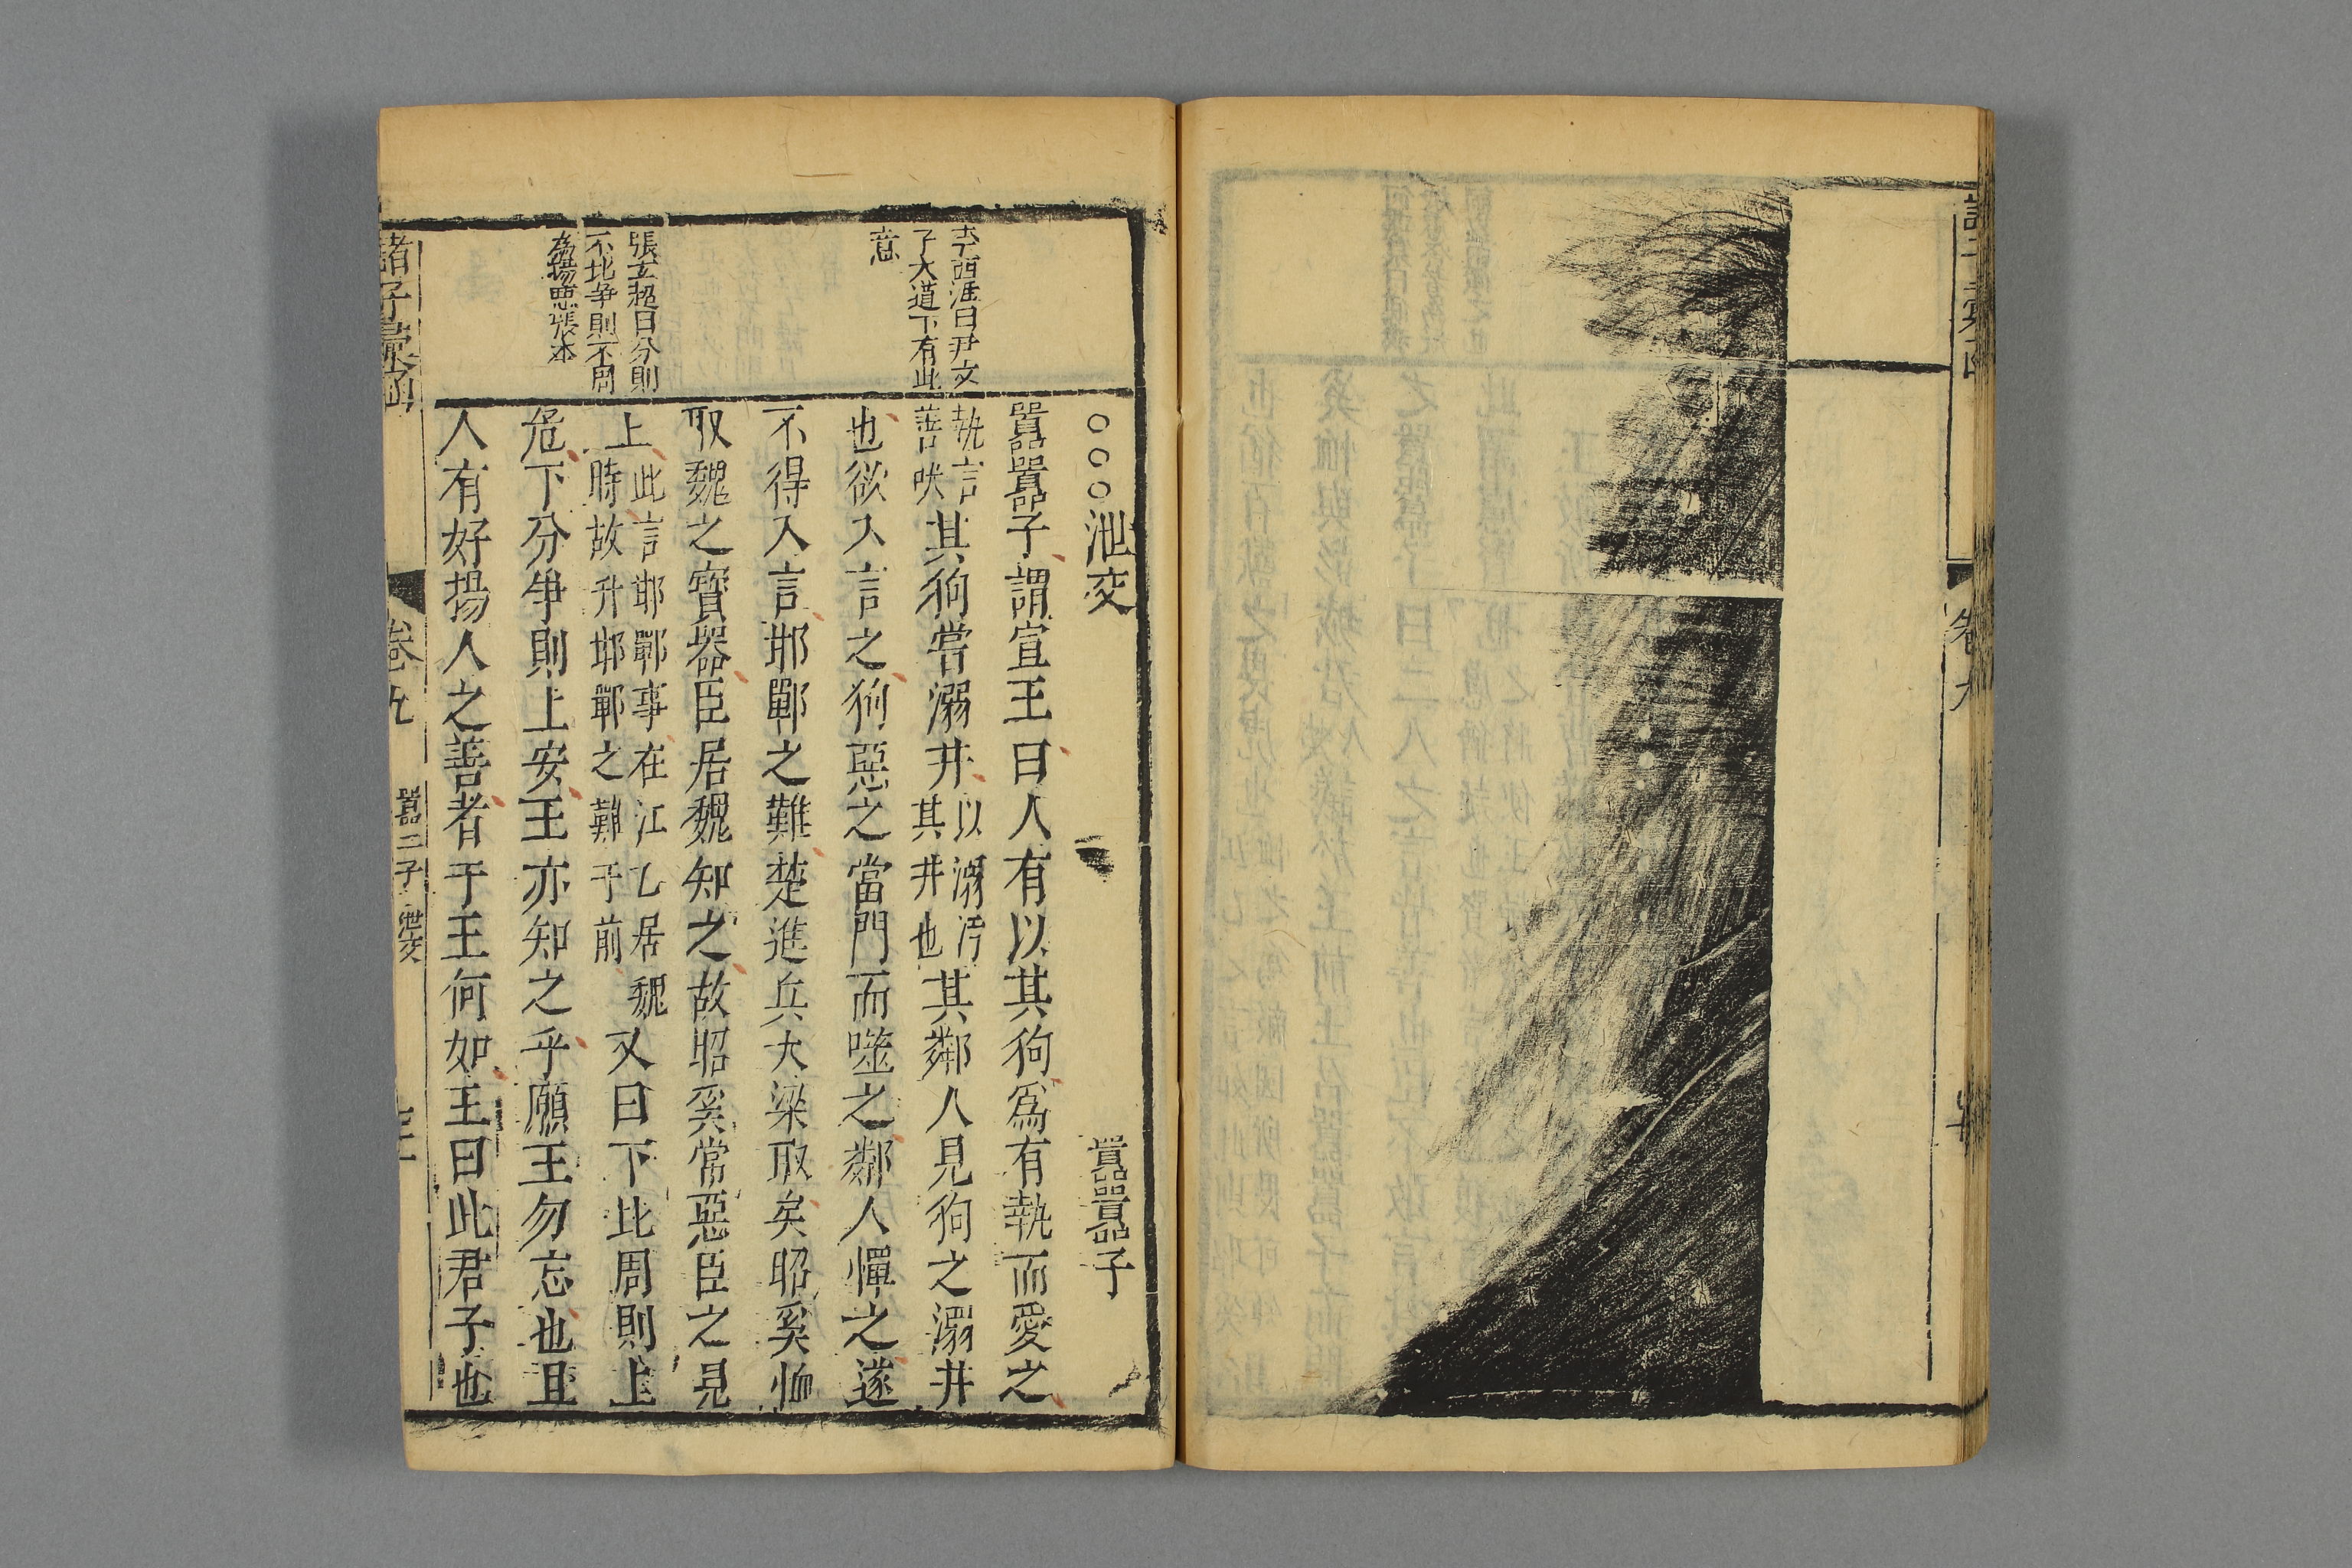 ○○○泄交　囂囂子
囂囂子謂宣王曰人有以其狗爲有執而愛之
執言善吠其狗嘗溺井以溺汚其井也其鄰人見狗之溺井
也欲入言之狗惡之當門而噬之鄰人憚之遂
不得入言邯鄲之難楚進兵大梁取矣昭奚恤
取魏之寶器臣居魏知之故昭奚常惡臣之見
上此言邯鄲事在江乙居魏時故升邯鄲之難于前又曰下比周則上
危下分爭則上安王亦知之乎願王勿忘也且
人有好揚人之善者于王何如王曰此君子也
李西涯曰尹文
子大道下有此
意
張玄超曰分則
不比爭則不周
為揚惡張本
諸子彙函
卷九
囂囂子 泄交
卷九